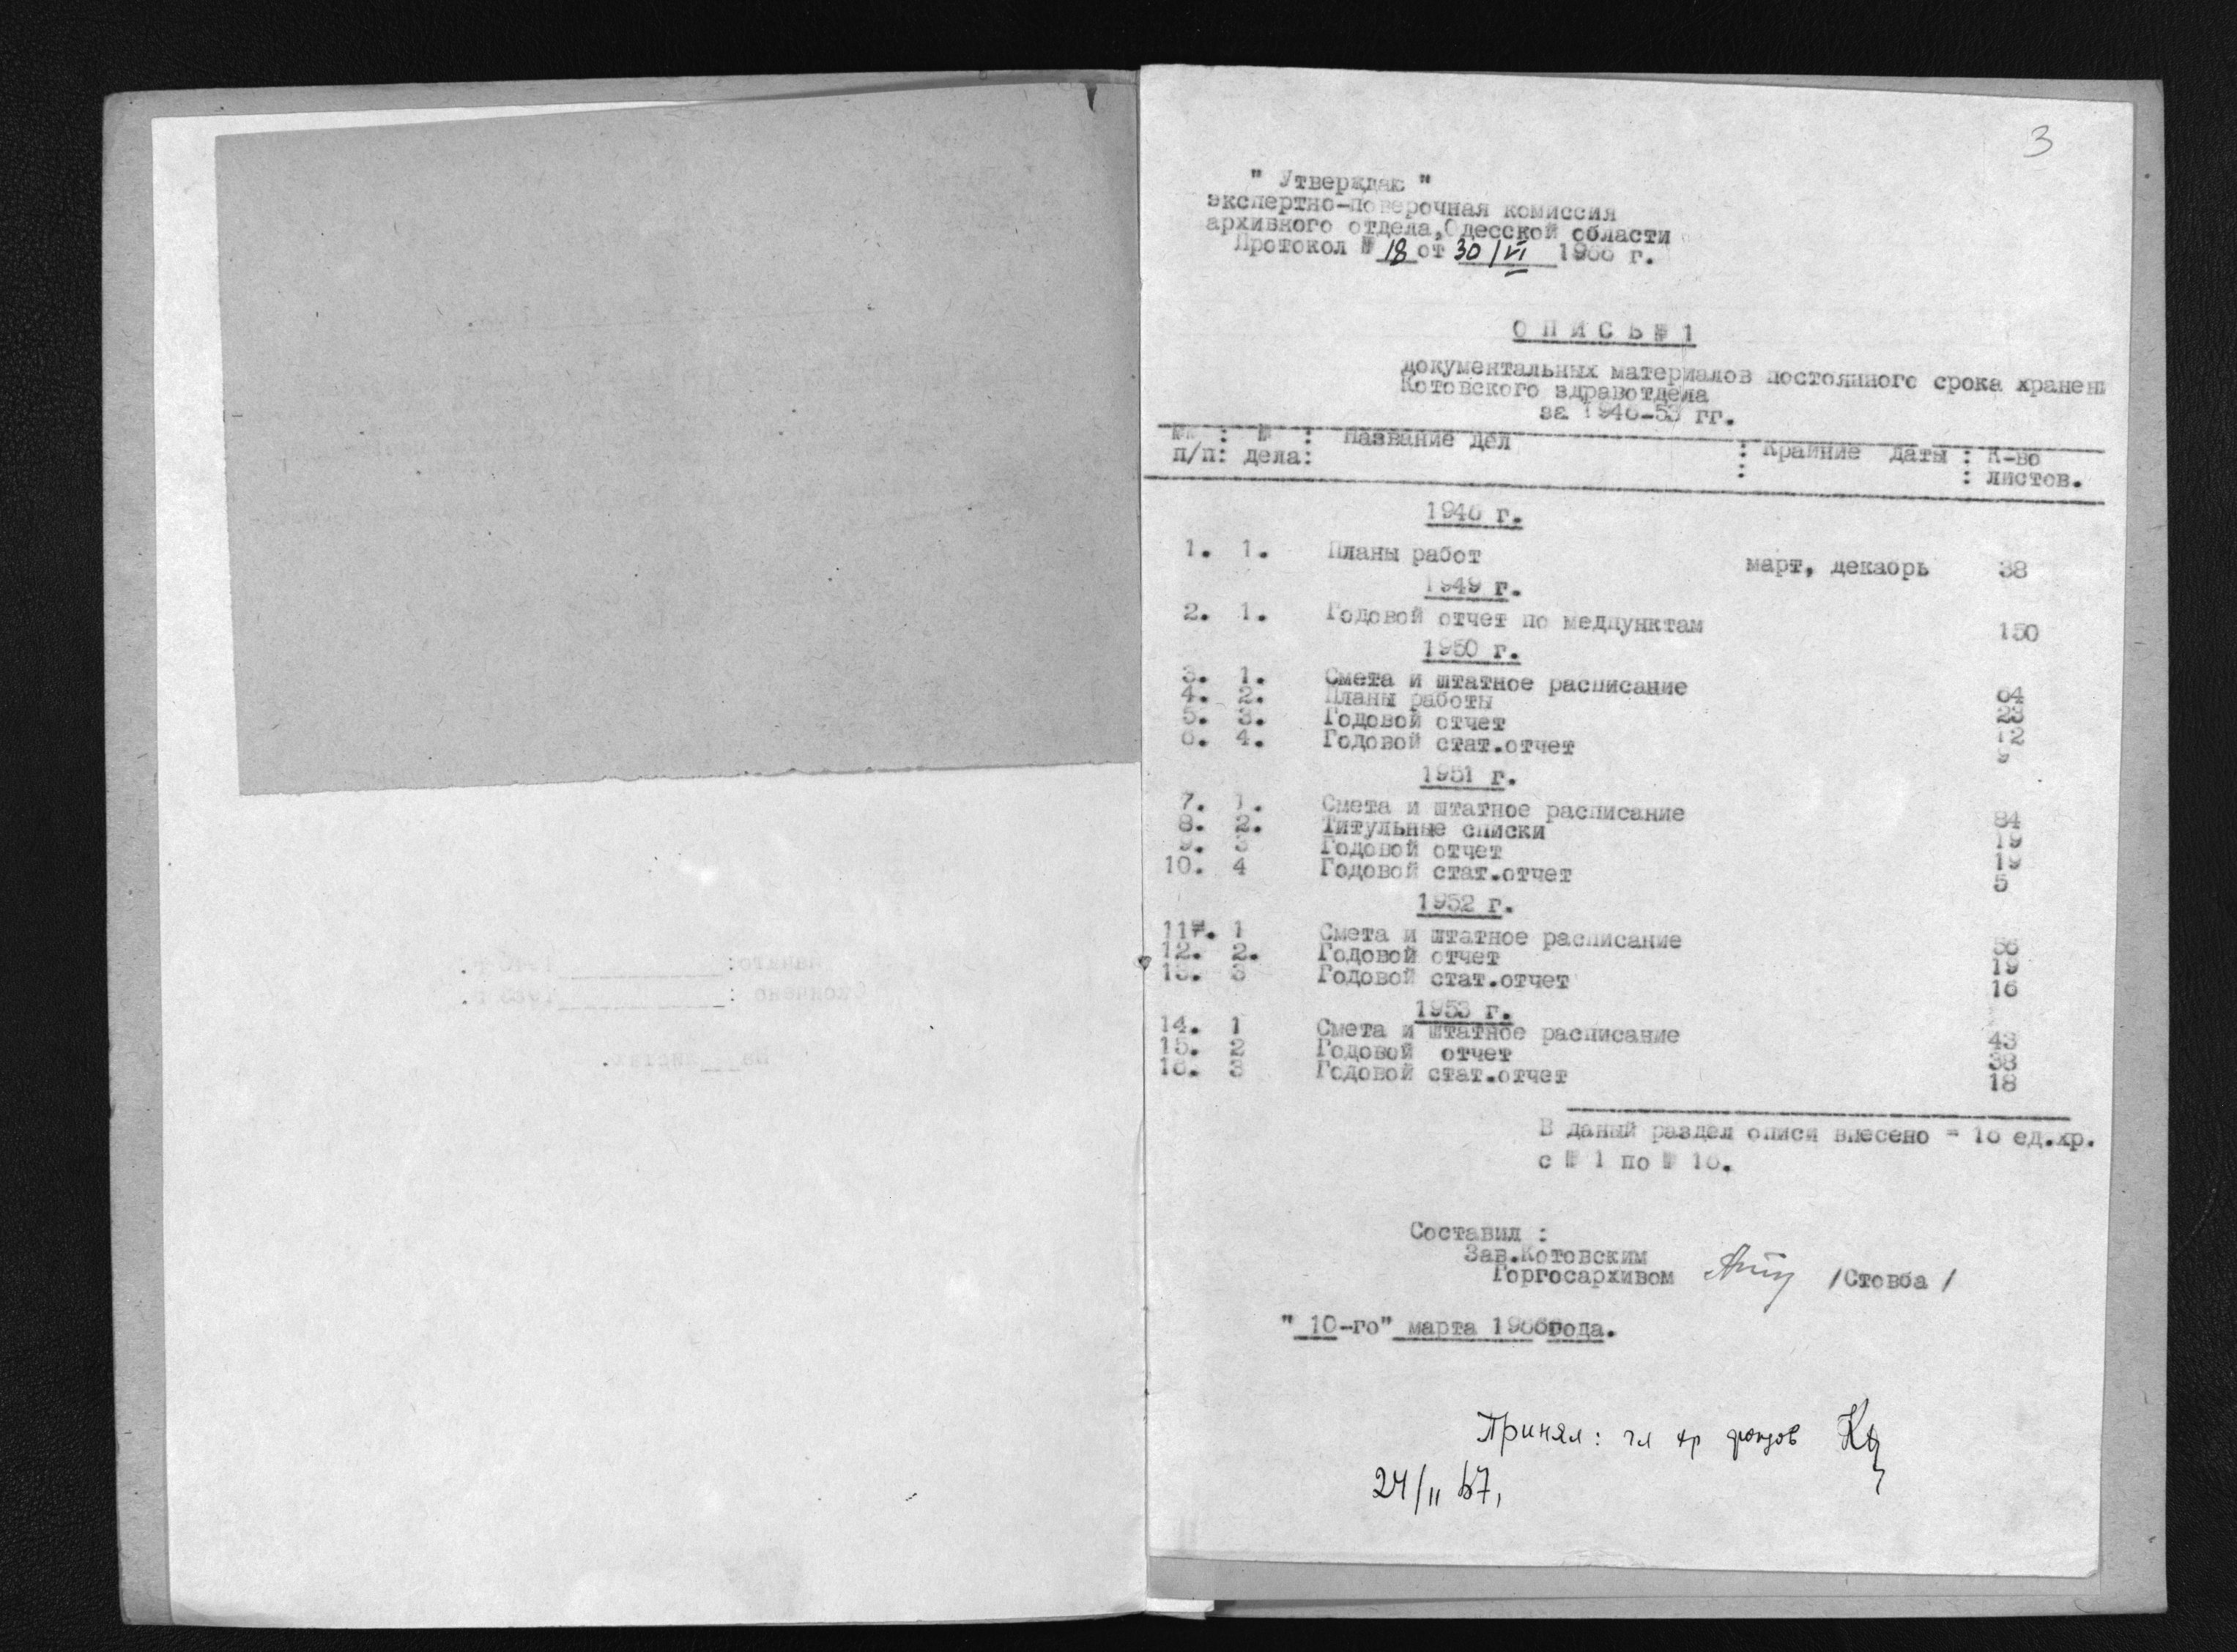 3
" Утверждаю "
экспертно-поверочная комиссия
архивного отдела,Одесской области
Протокол № 18 от 30/VI 1966 г.
О П И С Ь № 1
документальных материалов постоянного срока хранени
Котовского здравотдела
за 1946-53 гг.
№№ : № : Название дел : Крайние даты : К-во
п/п: дела: : : листов.
1946 г.
1. 1. Планы работ март, декабрь 38
1949 г.
2. 1. Годовой отчет по медпунктам 150
1950 г.
3. 1. Смета и штатное расписание 64
4. 2. Планы работы 23
5. 3. Годовой отчет 12
6. 4. Годовой стат.отчет 9
1951 г.
7. 1. Смета и штатное расписание 84
8. 2. Титульные списки 19
9. 3 Годовой отчет 19
10. 4 Годовой стат.отчет 5
1952 г.
11. 1 Смета и штатное расписание 56
12. 2. Годовой отчет 19
13. 3 Годовой стат.отчет 16
1953 г.
14. 1 Смета и штатное расписание 43
15. 2 Годовой отчет 38
16. 3 Годовой стат.отчет 18
В даный раздел описи внесено - 16 ед.хр.
с № 1 по № 16.
Составил :
Зав.Котовским
Горгосархивом /Стовба /
" 10-го" марта 1966 года.
Принял: гл хр фондов
24/II 67,